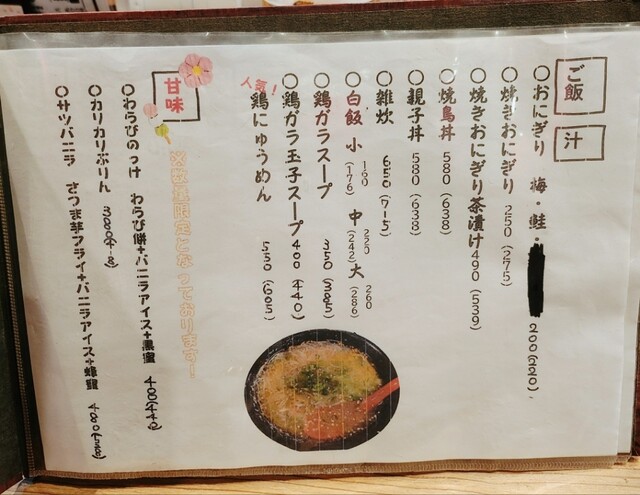 ご飯
汁
〇おにぎり 梅・鮭・ 200(220)
〇焼きおにぎり 250(275)
〇焼きおにぎり茶漬け 490(539)
〇焼鳥丼 580(638)
〇親子丼 580(638)
〇雑炊 650(715)
〇白飯 小 160(176) 中 220(242) 大 260(286)
〇鶏ガラスープ 350(385)
〇鶏ガラ玉子スープ 400(440)
人気!
鶏にゅうめん 550(605)
甘味
※数量限定となっております!
〇わらびのっけ わらび餅+バニラアイス+黒蜜
〇カリカリぷりん 380
〇サツバニラ さつま芋フライ+バニラアイス+蜂蜜 480